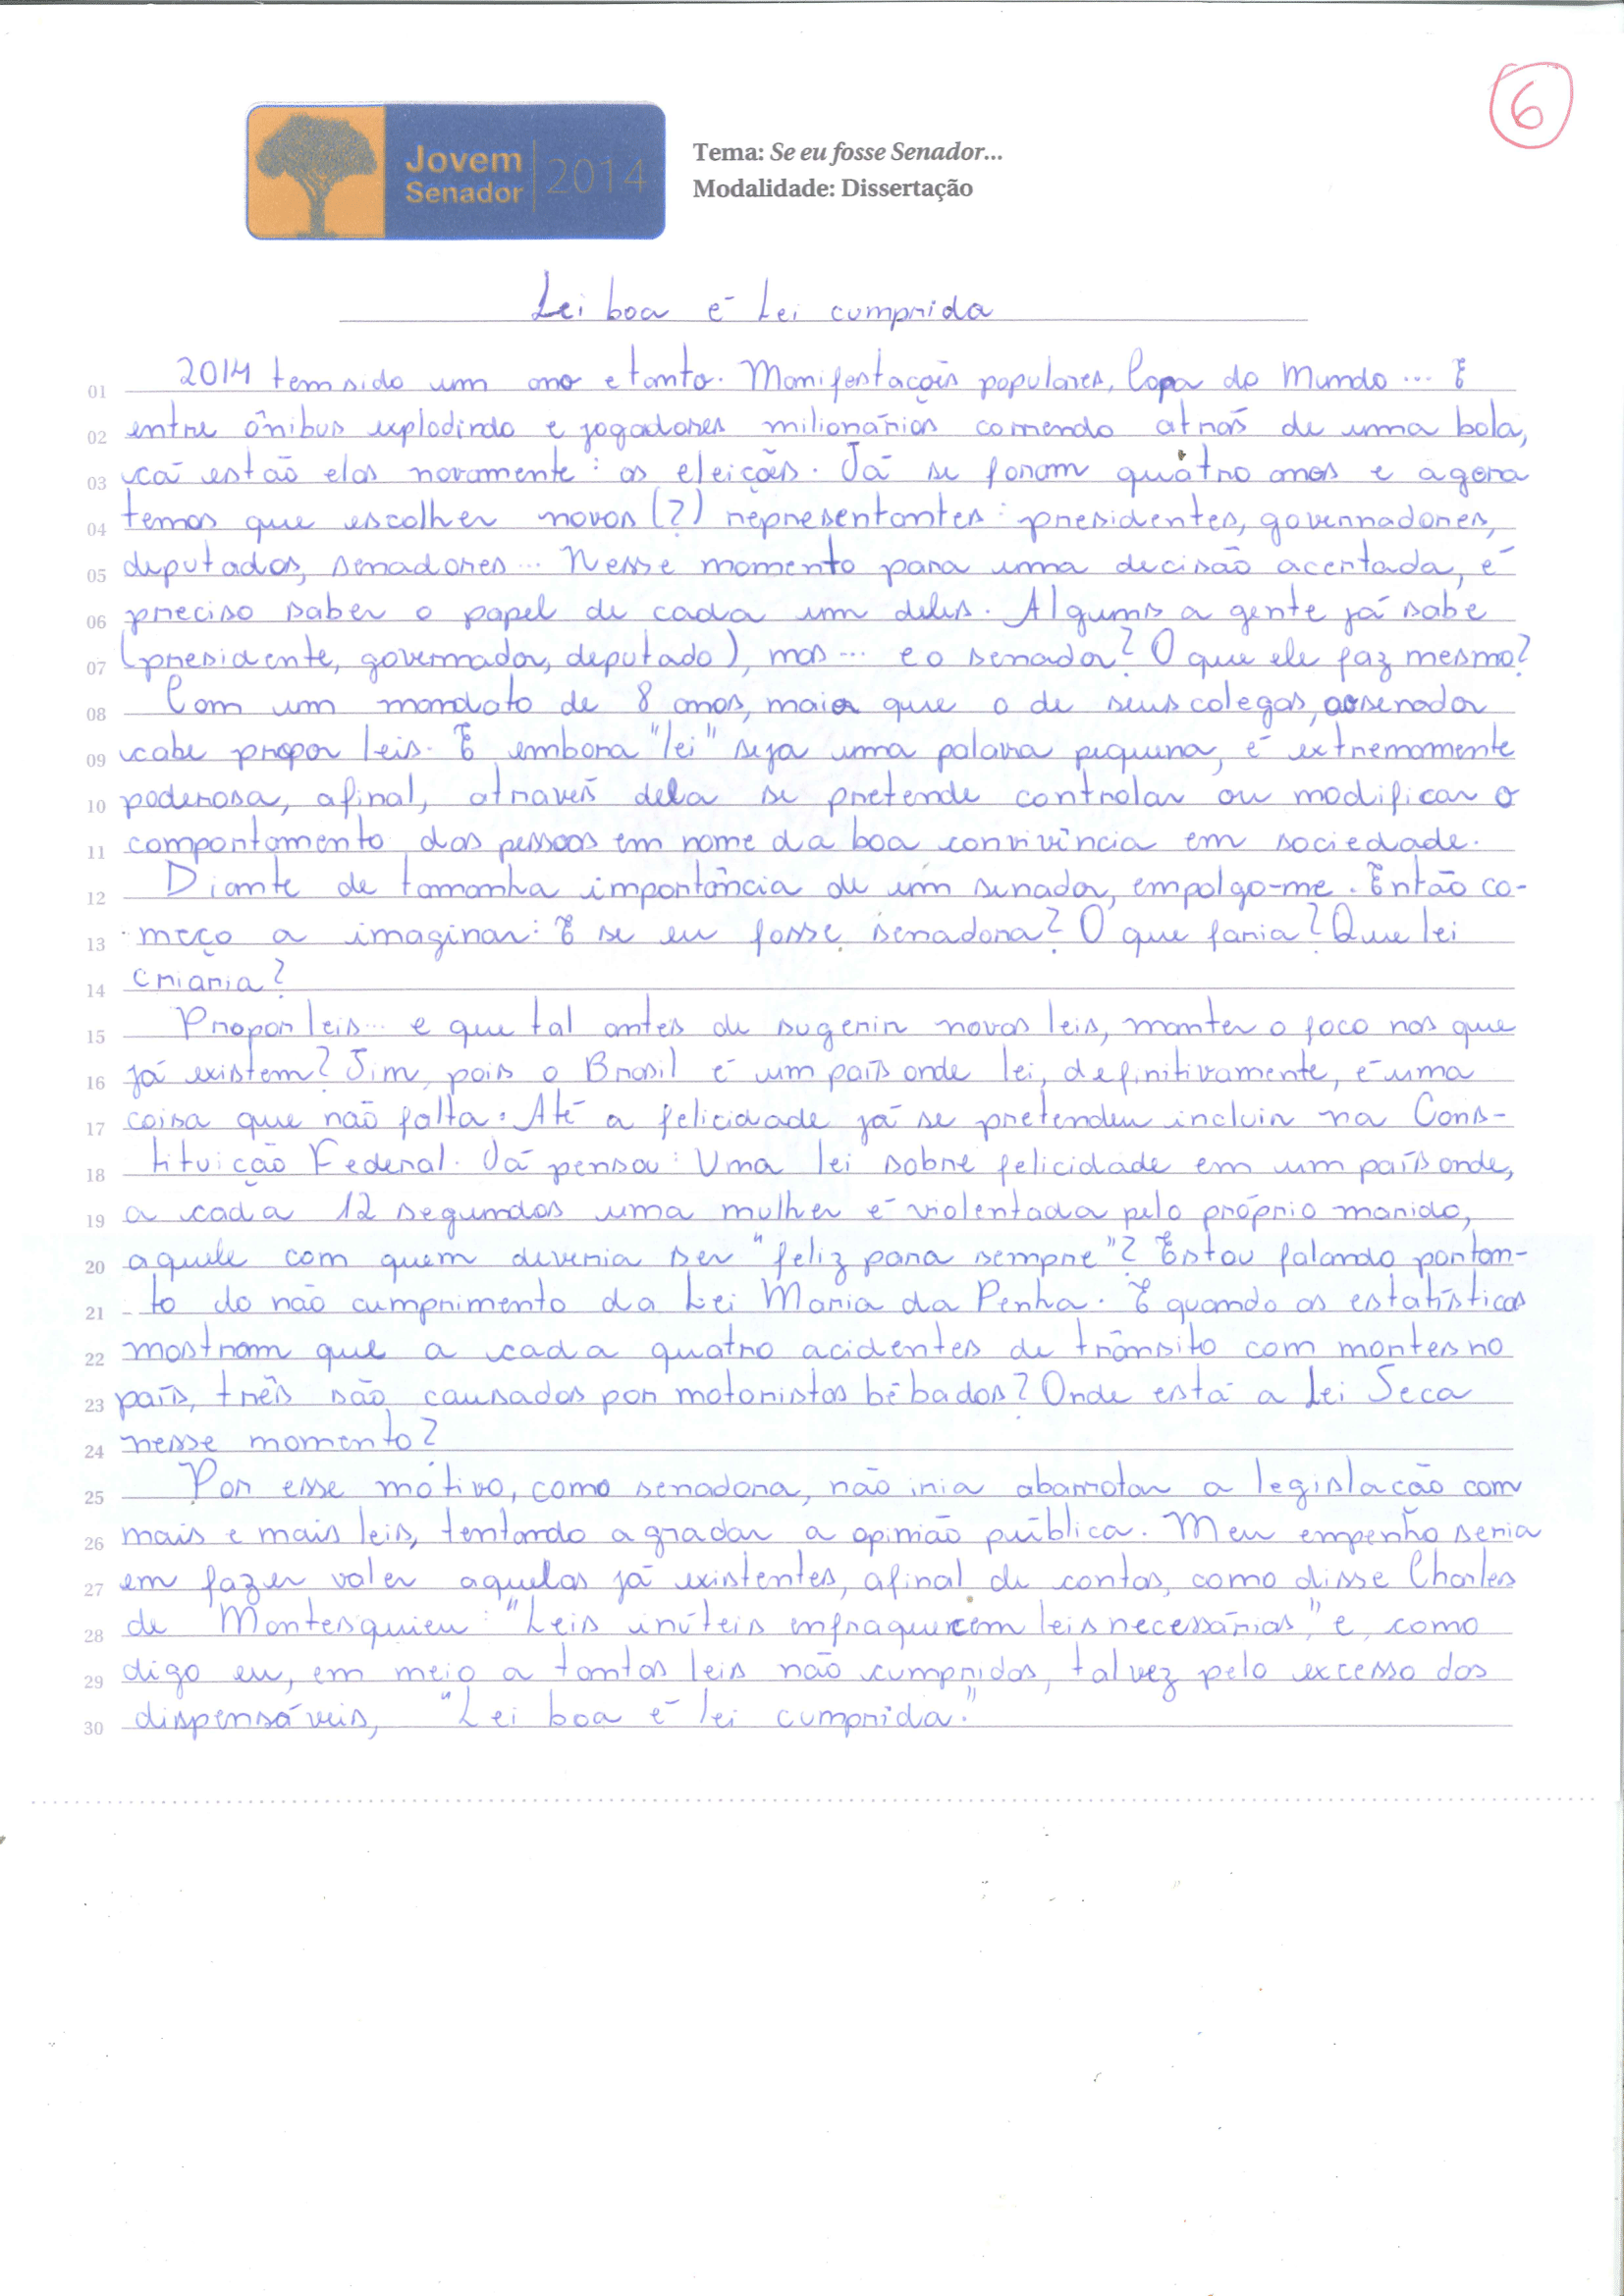 6
Jovem
Senador
2014
Tema: Se eu fosse Senador...
Modalidade: Dissertação
Lei boa é Lei cumprida
01 2014 tem sido um ano e tanto. Manifestações populares, Copa do Mundo... E
02 entre ônibus explodindo e jogadores milionários correndo atrás de uma bola,
03 cá estão elas novamente: as eleições. Já se foram quatro anos e agora
04 temos que escolher novos (?) representantes: presidentes, governadores,
05 deputados, senadores... Nesse momento para uma decisão acertada, é
06 preciso saber o papel de cada um deles. Alguns a gente já sabe
07 (presidente, governador, deputado), mas... e o senador? O que ele faz mesmo?
08 Com um mandato de 8 anos, maior que o de seus colegas, ao senador
09 cabe propor leis. E embora "lei" seja uma palavra pequena, é extremamente
10 poderosa, afinal, através dela se pretende controlar ou modificar o
11 comportamento das pessoas em nome da boa convivência em sociedade.
12 Diante de tamanha importância de um senador, empolgo-me. Então co-
13 meço a imaginar: E se eu fosse senadora? O que faria? Que lei
14 criaria?
15 Propor leis... e que tal antes de sugerir novas leis, manter o foco nas que
16 já existem? Sim, pois o Brasil é um país onde lei, definitivamente, é uma
17 coisa que não falta. Até a felicidade já se pretendeu incluir na Cons-
18 tituição Federal. Já pensou: Uma lei sobre felicidade em um país onde,
19 a cada 12 segundos uma mulher é violentada pelo próprio marido,
20 aquele com quem deveria ser "feliz para sempre"? Estou falando portan-
21 to do não cumprimento da Lei Maria da Penha. E quando as estatísticas
22 mostram que a cada quatro acidentes de trânsito com mortes no
23 país, três são causados por motoristas bêbados? Onde está a Lei Seca
24 nesse momento?
25 Por esse motivo, como senadora, não iria abarrotar a legislação com
26 mais e mais leis, tentando agradar a opinião pública. Meu empenho seria
27 em fazer valer aquelas já existentes, afinal de contas, como disse Charles
28 de Montesquieu: "Leis inúteis enfraquecem leis necessárias", e, como
29 digo eu, em meio a tantas leis não cumpridas, talvez pelo excesso das
30 dispensáveis, "Lei boa é lei cumprida."